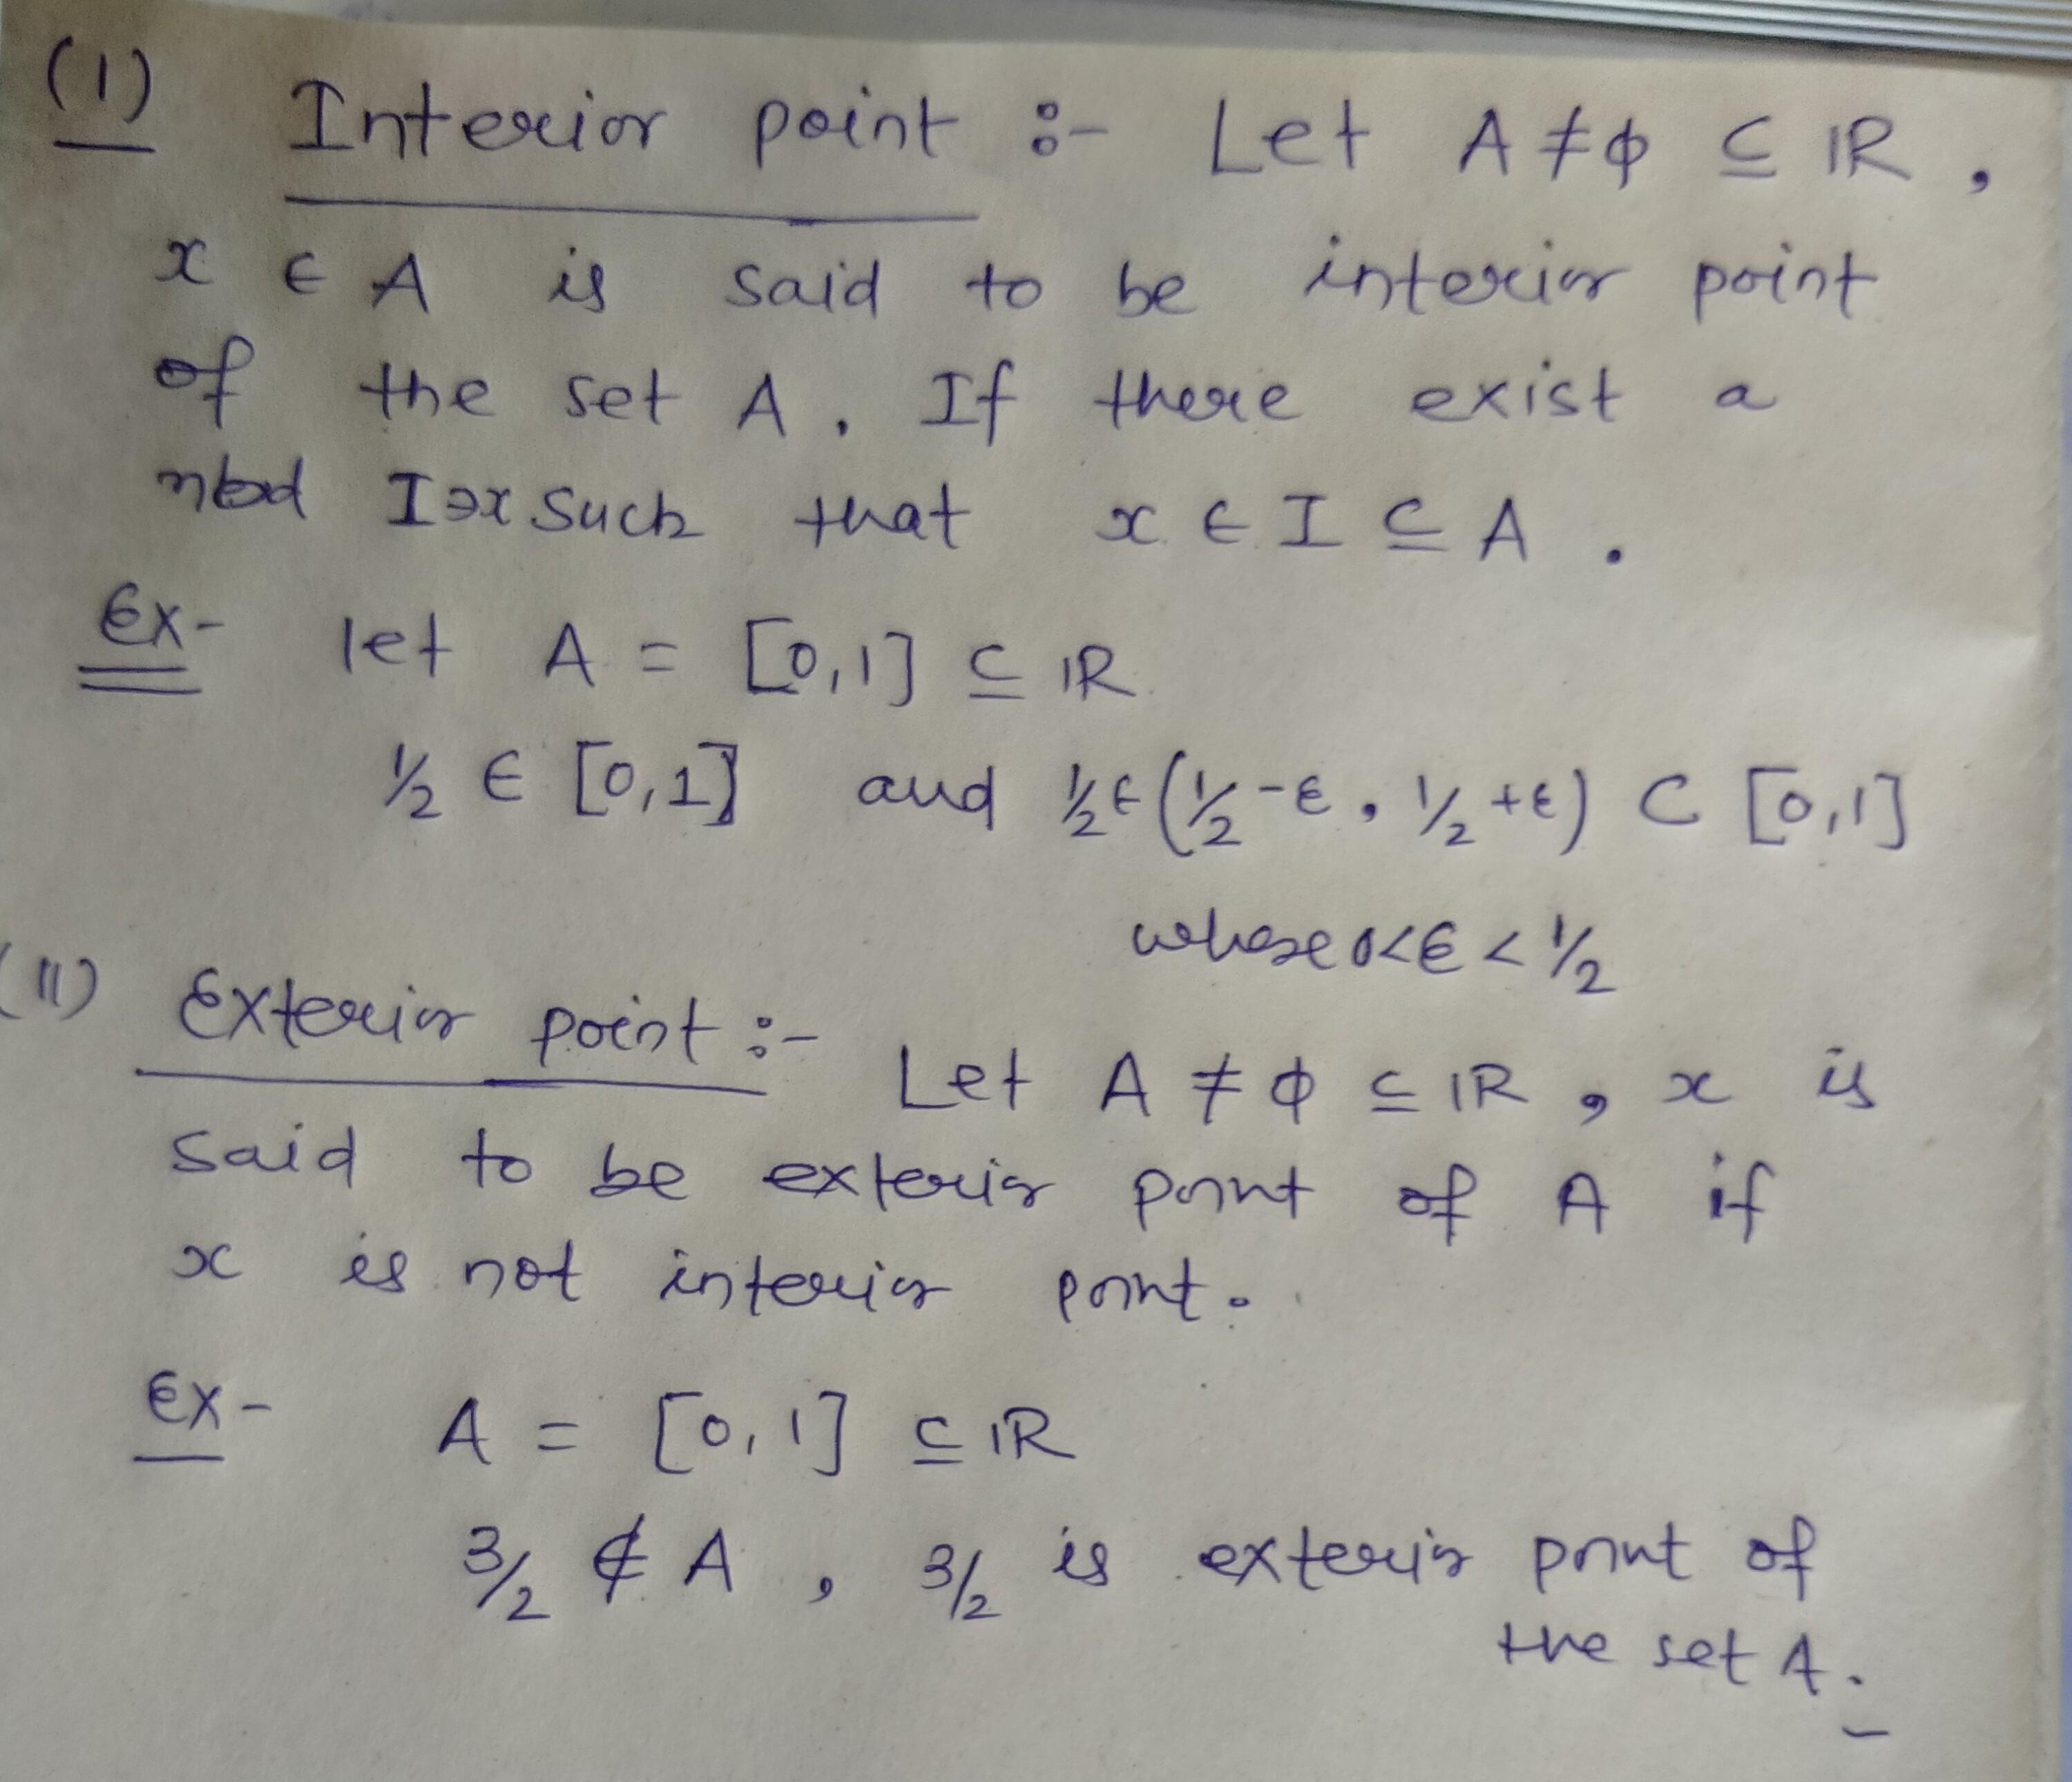 (I) Interior point :- Let A ≠ ϕ ⊆ IR ,
x ∈ A is said to be interior point
of the set A . If there exist a
nbd I∋x such that x ∈ I ⊆ A .
Ex- let A = [0,1] ⊆ IR
1/2 ∈ [0,1] and 1/2 ∈ (1/2 -ϵ , 1/2 +ϵ) ⊂ [0,1]
whose 0<ϵ < 1/2
(II) Exterior point :- Let A ≠ ϕ ⊆ IR , x is
said to be exterior point of A if
x is not interior point .
Ex- A = [0,1] ⊆ IR
3/2 ∉ A , 3/2 is exterior point of
the set A .